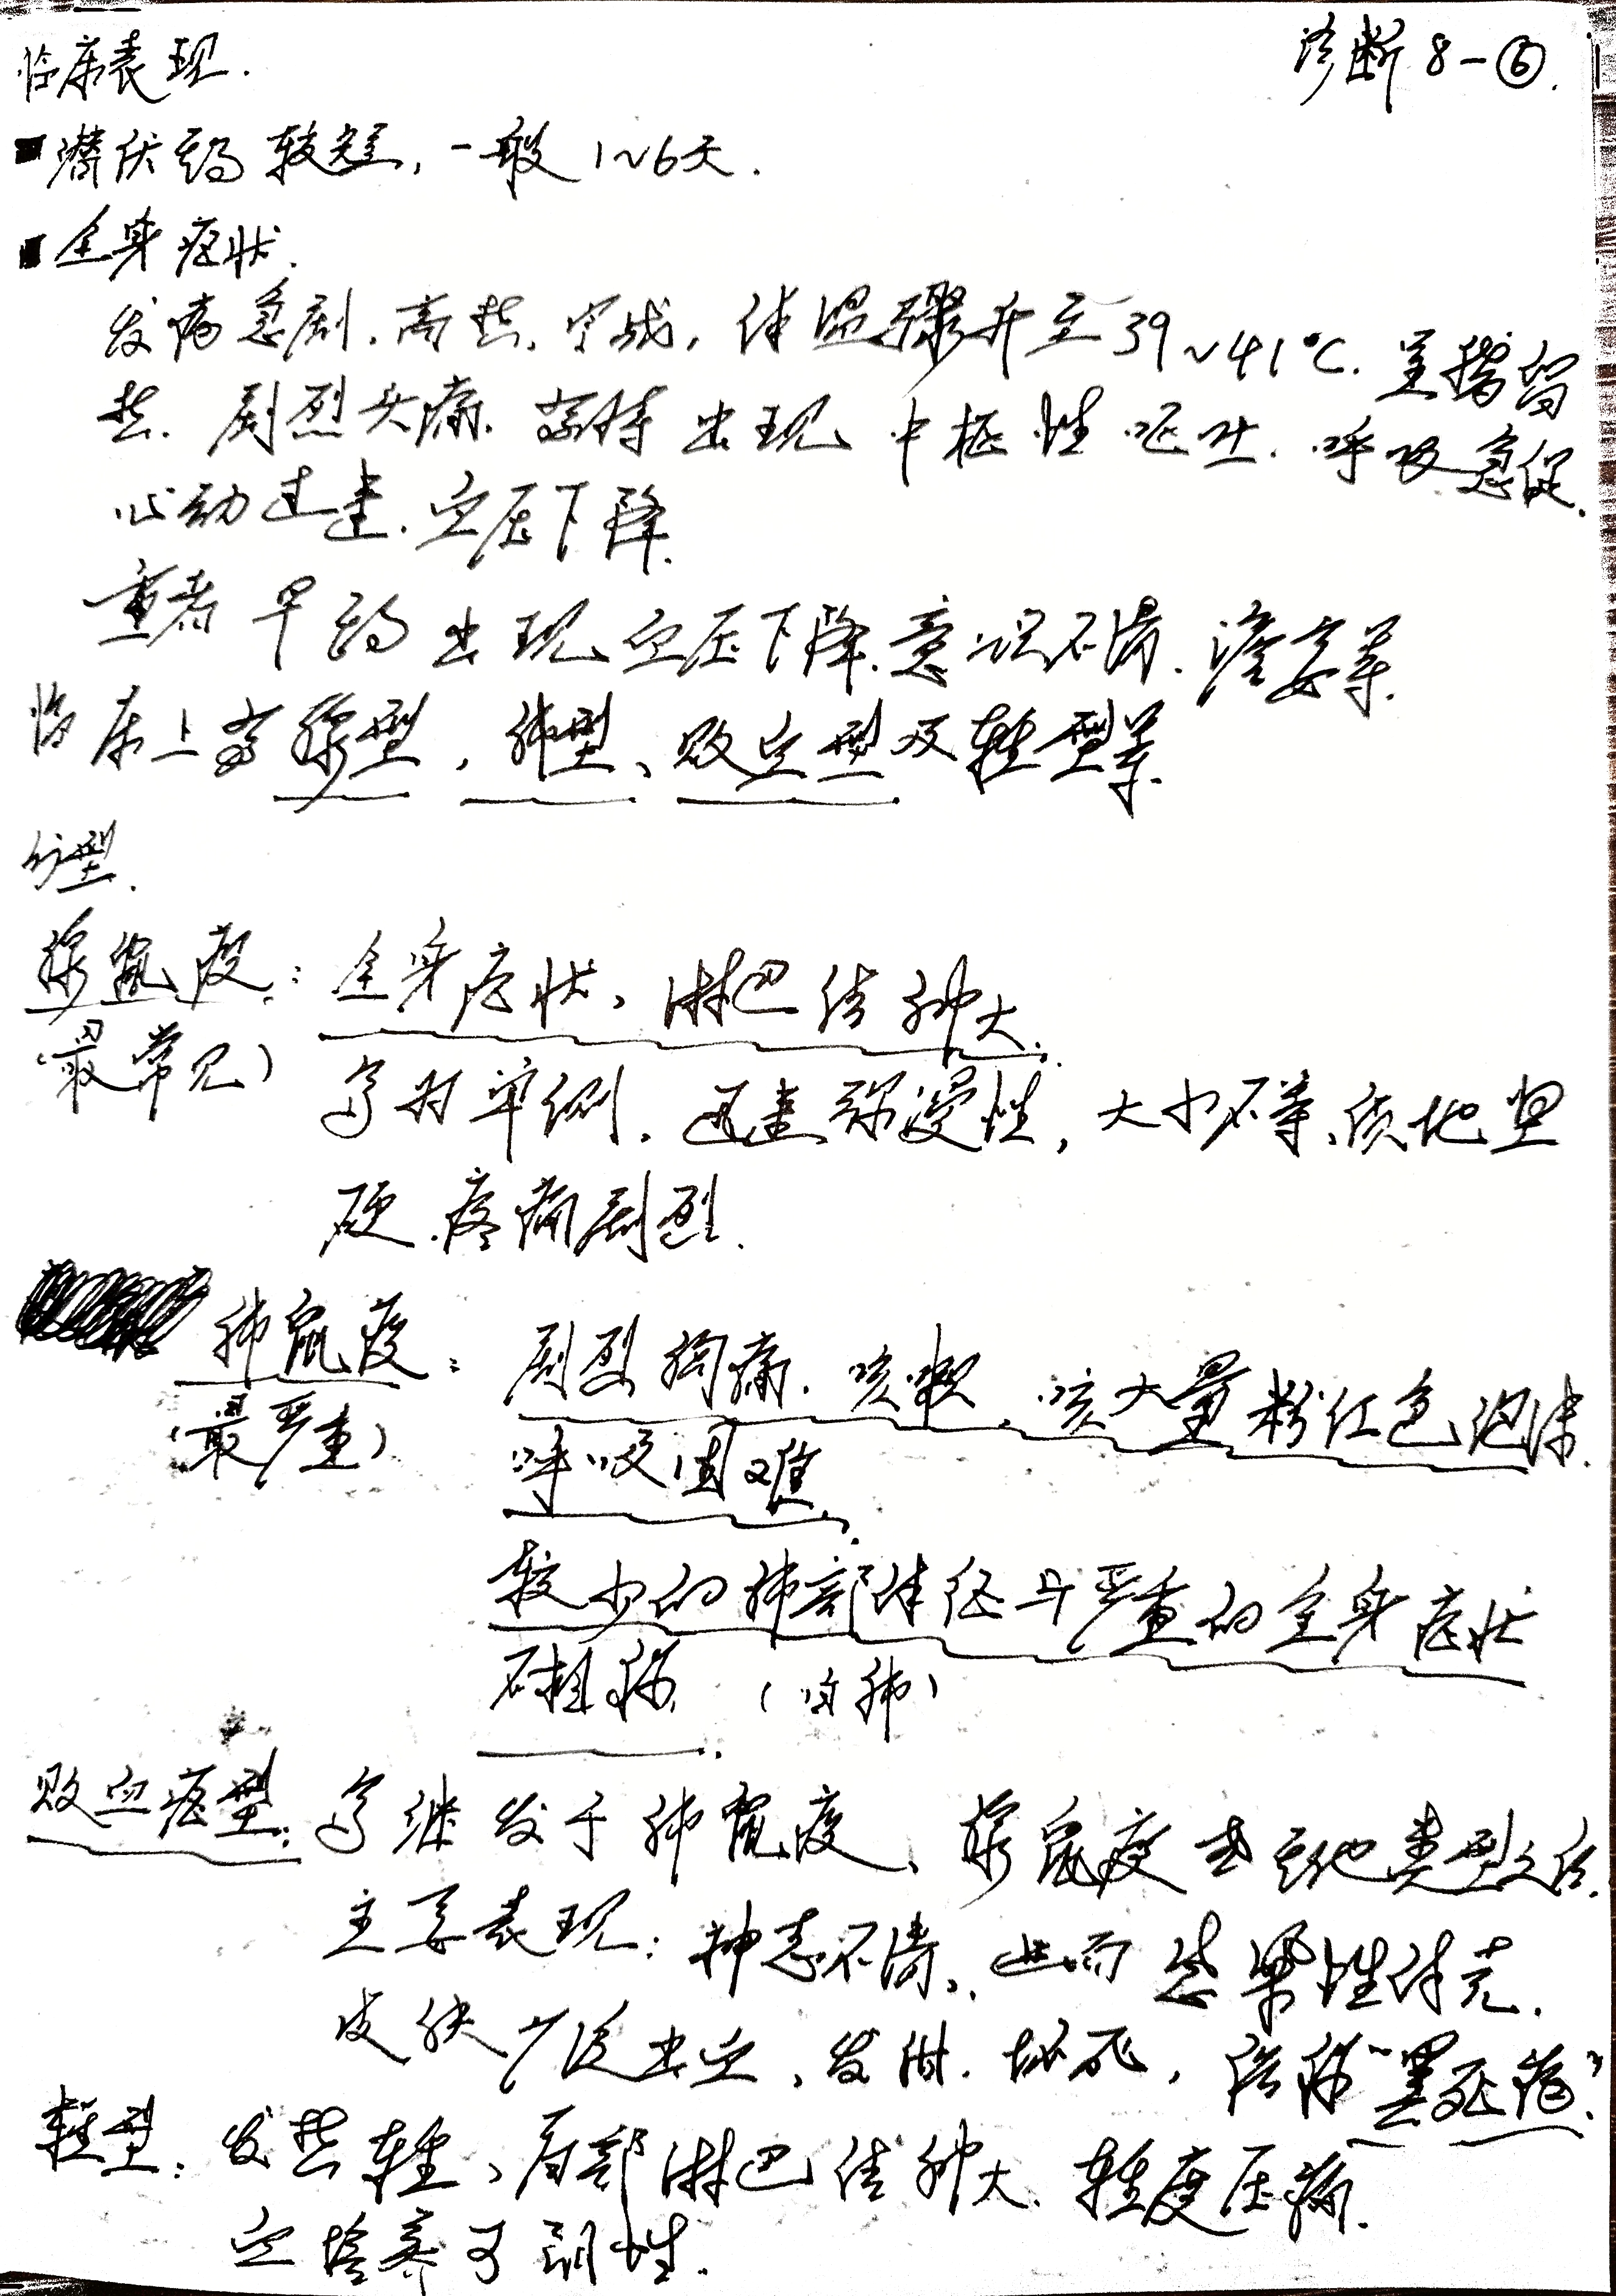 诊断 8-⑥.
临床表现.
■潜伏期较短, 一般 1~6天.
■全身症状.
发病急剧. 高热. 寒战. 体温骤升至39~41℃. 呈稽留
热. 剧烈头痛. 有时出现中枢性呕吐. 呼吸急促.
心动过速. 血压下降.
重者早期出现血压下降. 意识不清. 谵妄等.
临床上有腺型, 肺型、败血型及轻型等.
分型.
腺鼠疫: 全身症状、淋巴结肿大.
(最常见) 多为单侧. 迅速弥漫性, 大小不等、质地坚
硬. 疼痛剧烈.
肺鼠疫: 剧烈胸痛. 咳嗽. 咳大量粉红色泡沫.
(最严重) 呼吸困难.
较少的肺部体征与严重的全身症状
不相称. (肺)
败血症型: 多继发于肺鼠疫、腺鼠疫或其他类型之后.
主要表现: 神志不清、进而感染性休克.
皮肤广泛出血、发绀. 坏死, 俗称“黑死病”.
轻型: 发热轻、局部淋巴结肿大. 轻度压痛.
血培养可阳性.